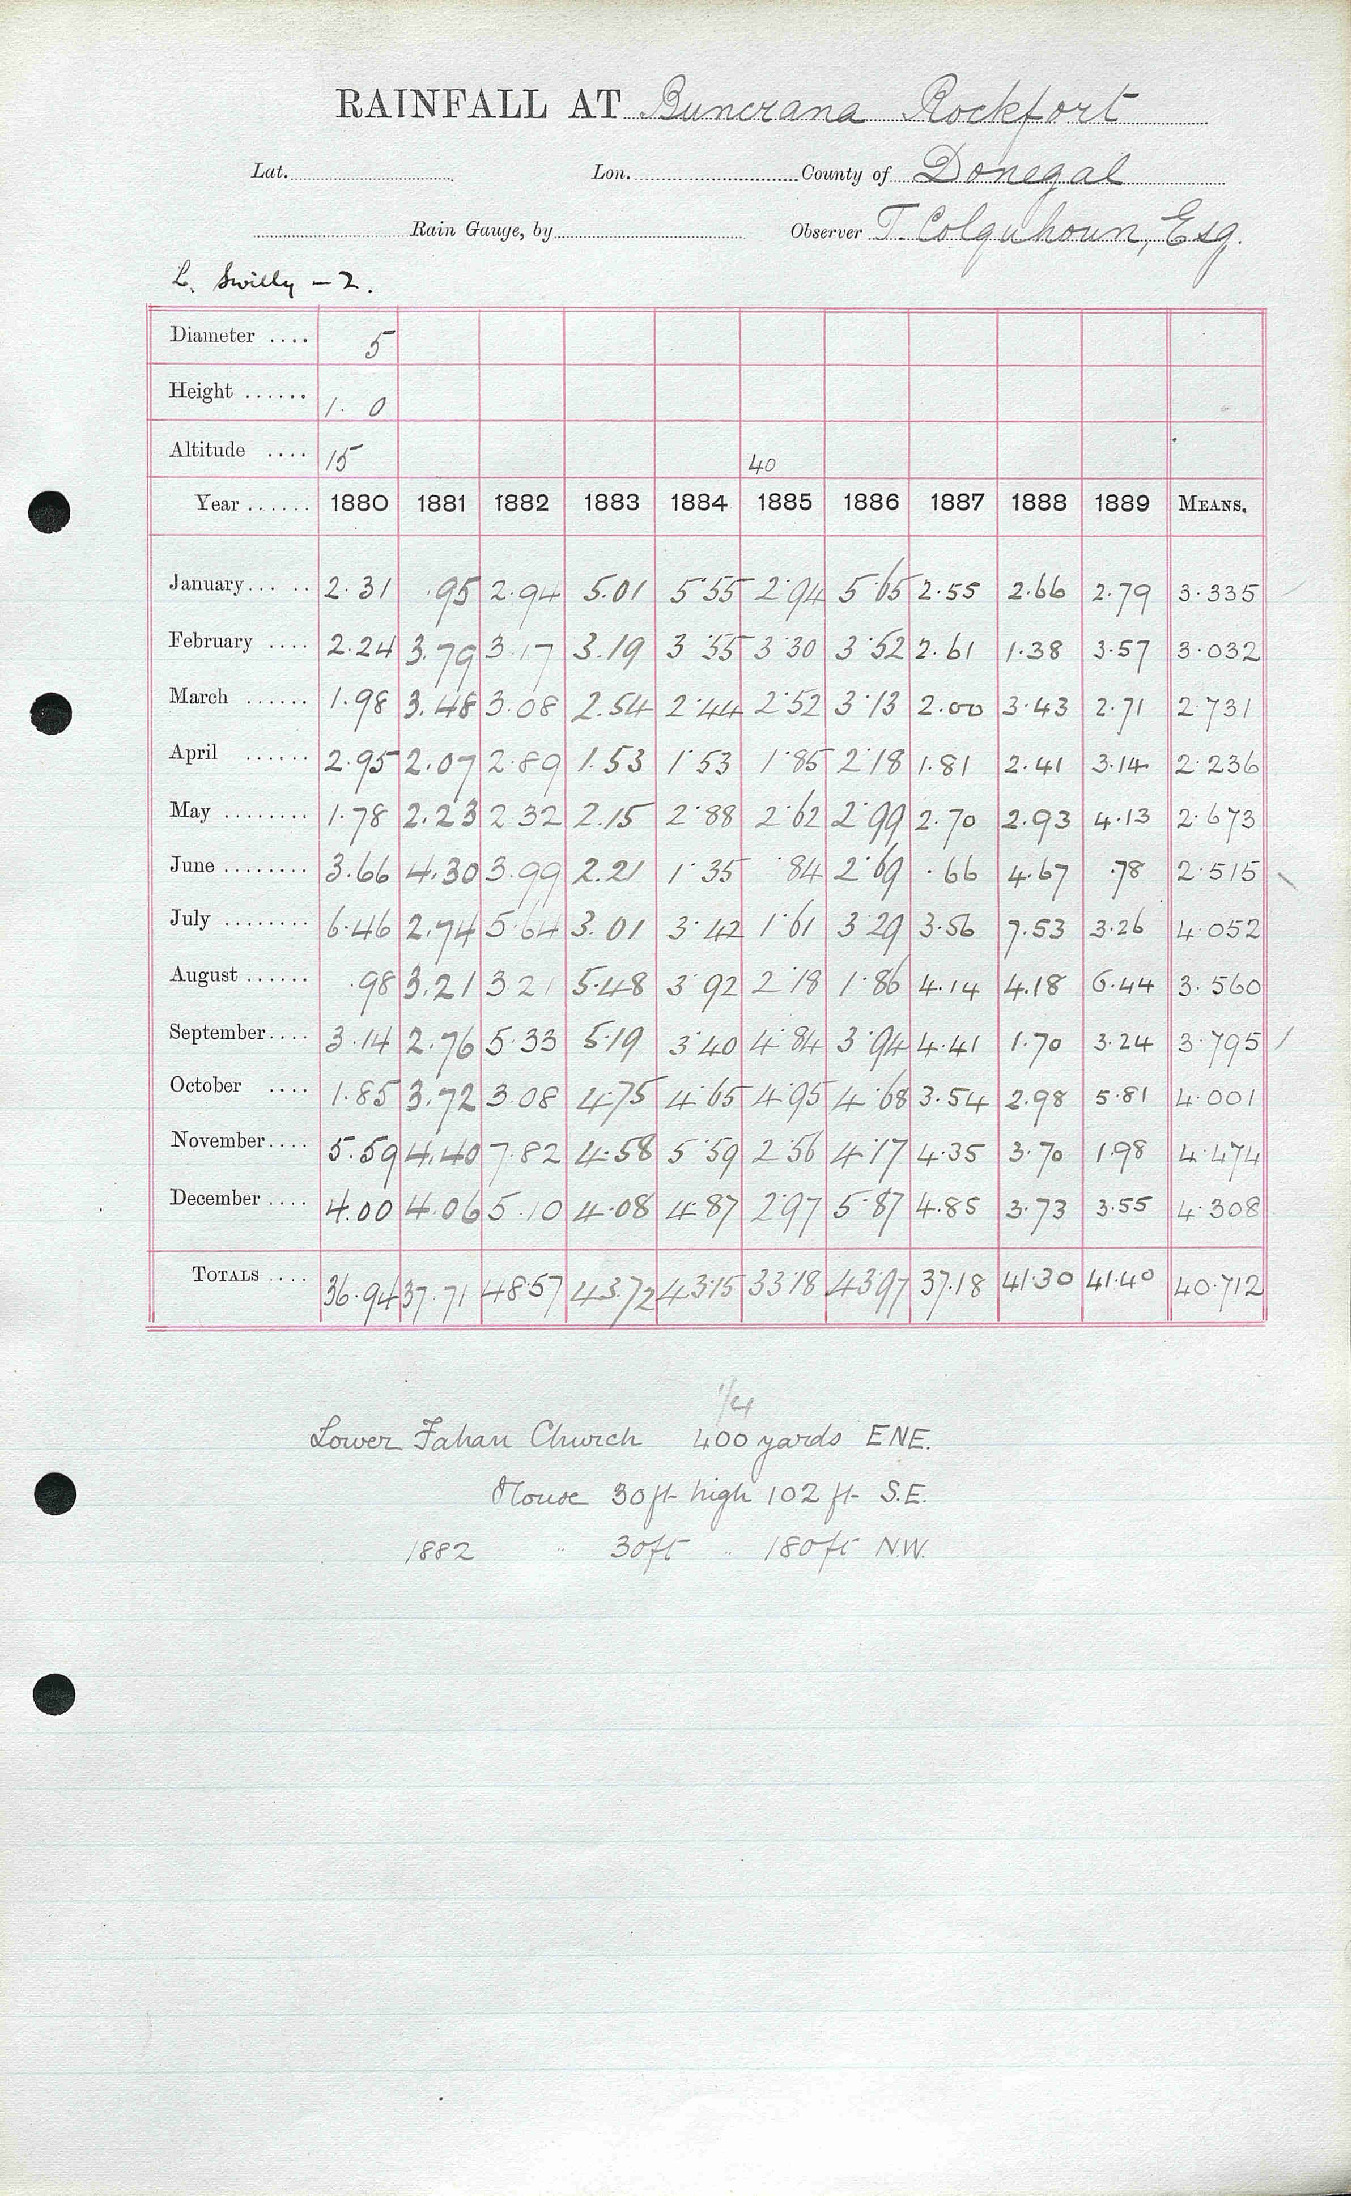 RAINFALL AT Buncrana Rockfort
Lat. Lon. County of Donegal
Rain Gauge, by Observer T. Colquhoun, Esq.
L. Swilly – 2.
Diameter .... 5
Height ...... 1. 0
Altitude .... 15 40
Year ...... 1880 1881 1882 1883 1884 1885 1886 1887 1888 1889 MEANS.
January ..... 2.31 .95 2.94 5.01 5.55 2.94 5.65 2.55 2.66 2.79 3.335
February .... 2.24 3.79 3.17 3.19 3.55 3.30 3.52 2.61 1.38 3.57 3.032
March ...... 1.98 3.48 3.08 2.54 2.44 2.52 3.13 2.00 3.43 2.71 2.731
April ...... 2.95 2.07 2.89 1.53 1.53 1.85 2.18 1.81 2.41 3.14 2.236
May ........ 1.78 2.23 2.32 2.15 2.88 2.62 2.99 2.70 2.93 4.13 2.673
June ........ 3.66 4.30 3.99 2.21 1.35 .84 2.69 .66 4.67 .78 2.515
July ........ 6.46 2.74 5.64 3.01 3.42 1.61 3.29 3.56 7.53 3.26 4.052
August ...... .98 3.21 3.21 5.48 3.92 2.18 1.86 4.14 4.18 6.44 3.560
September .... 3.14 2.76 5.33 5.19 3.40 4.84 3.94 4.41 1.70 3.24 3.795
October .... 1.85 3.72 3.08 4.75 4.65 4.95 4.68 3.54 2.98 5.81 4.001
November .... 5.59 4.40 7.82 4.58 5.59 2.56 4.17 4.35 3.70 1.98 4.474
December .... 4.00 4.06 5.10 4.08 4.87 2.97 5.87 4.85 3.73 3.55 4.308
TOTALS .... 36.94 37.71 48.57 43.72 43.15 33.18 43.97 37.18 41.30 41.40 40.712
1/4
Lower Fahan Church 400 yards ENE.
House 30ft high 102 ft S.E.
1882 " 30ft " 180ft N.W.